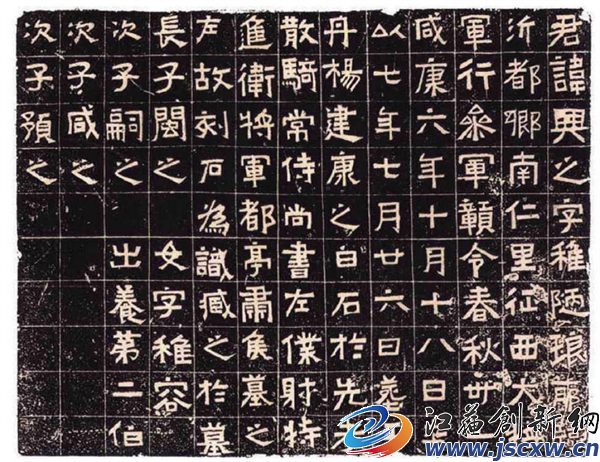 君諱興之字稚陋琅耶
沂都鄉南仁里征西大
軍行參軍贛令春秋卅
咸康六年十月十八日
以七年七月廿六日葬
丹楊建康之白石於先
散騎常侍尚書左僕射特
進衛將軍都亭肅侯墓之
左故刻石為識臧之於墓
長子閩之 女字稚容
次子嗣之 出養第二伯
次子咸之
次子預之
江苏创新网
www.jscxw.cn